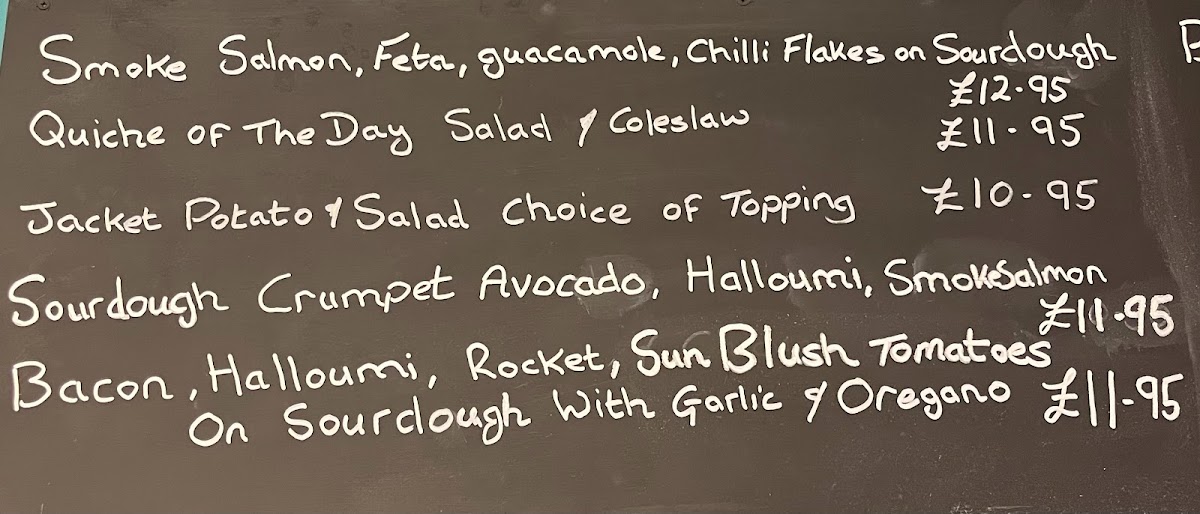 Smoke Salmon, Feta, guacamole, Chilli Flakes on Sourdough
£12.95
Quiche of The Day Salad & Coleslaw £11-95
Jacket Potato & Salad Choice of Topping £10-95
Sourdough Crumpet Avocado, Halloumi, Smoke Salmon
£11.95
Bacon, Halloumi, Rocket, Sun Blush Tomatoes
On Sourdough With Garlic & Oregano £11-95